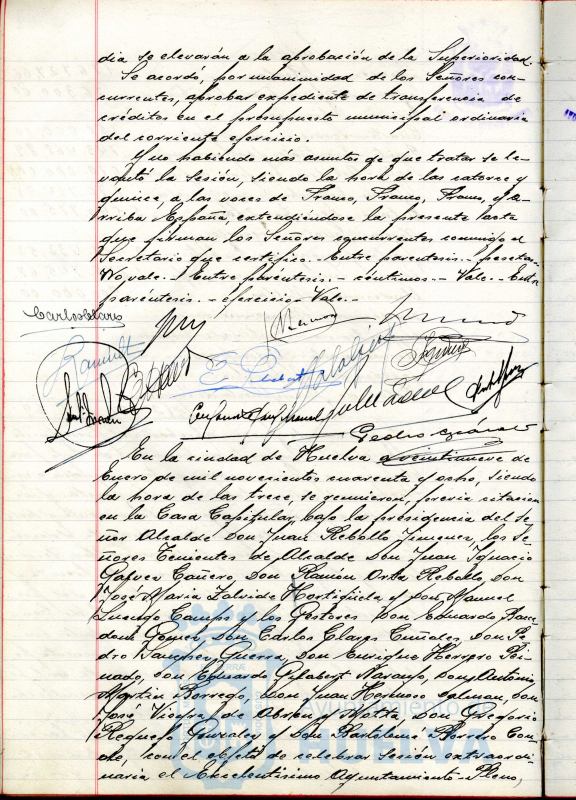 dia se elevarán a la aprobación de la Superioridad.
Se acordó, por unanimidad de los Señores con-
currentes, aprobar expediente de transferencia de
créditos en el presupuesto municipal ordinario
del corriente ejercicio.
Y no habiendo más asuntos de que tratar se le-
vantó la sesión, siendo la hora de las catorce y
quince, a las voces de Franco, Franco, Franco, y A-
rriba España, extendiéndose la presente acta
que firman los Señores concurrentes conmigo el
Secretario que certifico.- Entre parentesis.- pesetas.-
No vale.- Entre paréntesis.- céntimos.- Vale.- Entre
paréntesis.- ejercicio.- Vale.-
Carlos Clarós
E. Gilabert
Pedro
En la ciudad de Huelva a veintinueve de
Enero de mil novecientos cuarenta y ocho, siendo
la hora de las trece, se reunieron, previa citacion
en la Casa Capitular, bajo la presidencia del Se-
ñor Alcalde Don Juan Rebollo Jimenez, los Se-
ñores Tenientes de Alcalde Don Juan Ignacio
Galvez Cañero, Don Ramón Orta Rebollo, Don
José Maria Zalvide Hortigüela y Don Manuel
Luengo Camps y los Gestores Don Eduardo
Gomez, Don Carlos Claros Don Pe-
dro Vazquez Guerra, Don Enrique Herrero
Don Eduardo Gilabert Naranjo, Don Antonio
Martin Borrego, Don Juan Hermoso Don
José Vicira de Abreu y Motta, Don Gregorio
Requejo Gonzalez y Don Bartolomé Borrero Con-
che, con el objeto de celebrar sesión extraordi-
naria el Excelentisimo Ayuntamiento Pleno,
Ayuntamiento de
HUELVA